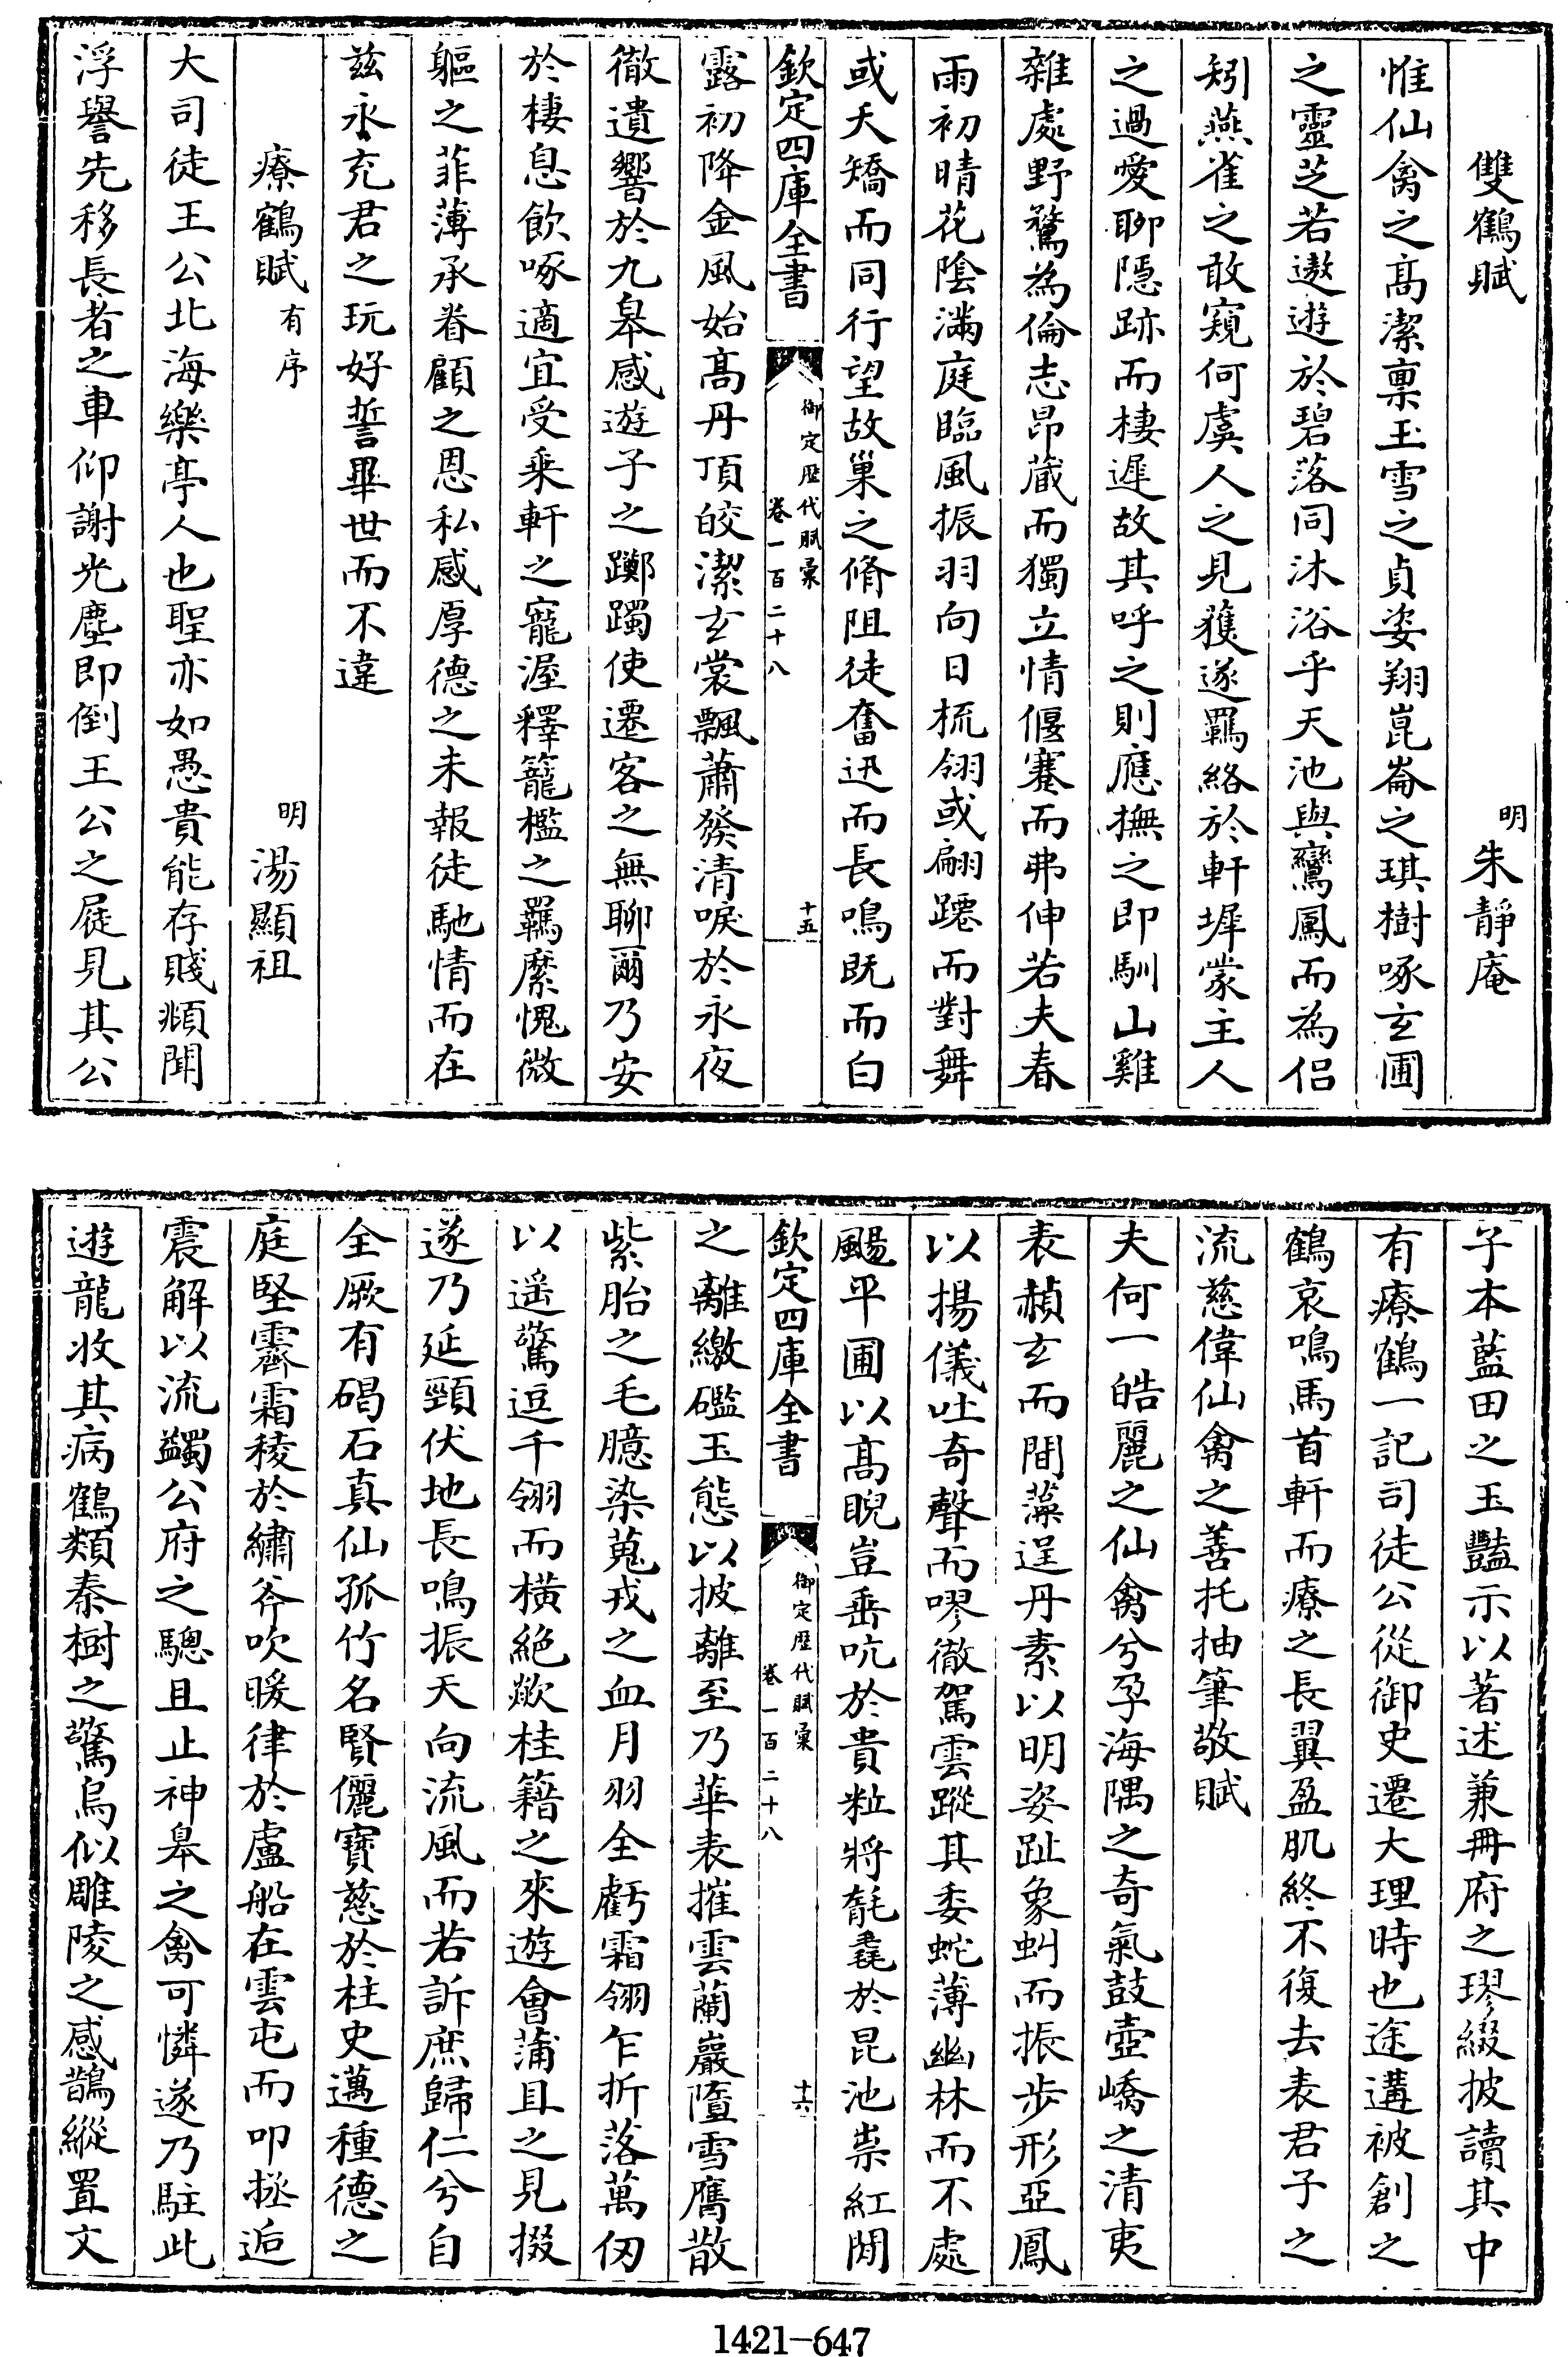 雙鶴賦 明 朱靜庵
惟仙禽之高潔禀玉雪之貞姿翔崑崙之琪樹啄玄圃
之靈芝若遨遊於碧落同沐浴乎天池與鸞鳳而為侶
矧燕雀之敢窺何虞人之見獲遂羈絡於軒墀蒙主人
之過愛聊隱跡而棲遲故其呼之則應撫之即馴山雞
雜處野鶩為倫志昂藏而獨立情偃蹇而弗伸若夫春
雨初晴花陰滿庭臨風振羽向日梳翎或翩躚而對舞
或夭矯而同行望故巢之脩阻徒奮迅而長鳴既而白
欽定四庫全書 御定歴代賦彙 卷一百二十八 十五
露初降金風始高丹頂皎潔玄裳飄蕭發清唳於永夜
徹遺響於九皋感遊子之躑躅使遷客之無聊爾乃安
於棲息飲啄適宜受乘軒之寵渥釋籠檻之羈縻愧微
軀之菲薄承眷顧之恩私感厚德之未報徒馳情而在
兹永充君之玩好誓畢世而不違
療鶴賦 有序 明 湯顯祖
大司徒王公北海樂亭人也聖亦如愚貴能存賤顯聞
浮譽先移長者之車仰謝光塵即倒王公之屣見其公
子本藍田之玉豔示以著述兼冊府之璆綴披讀其中
有療鶴一記司徒公從御史遷大理時也途遘被創之
鶴哀鳴馬首軒而療之長翼盈肌終不復去表君子之
流慈偉仙禽之善托抽筆敬賦
夫何一皓麗之仙禽兮孕海隅之奇氣鼓壺嶠之清夷
表赬玄而間藻逞丹素以明姿趾象虯而振步形亞鳳
以揚儀吐奇聲而嘐徹駕雲蹤其委蛇薄幽林而不處
颺平圃以高睨豈垂吭於貴粒將毻毳於昆池祟紅閼
欽定四庫全書 御定歴代賦彙 卷一百二十八 十六
之離繳礛玉態以披離至乃華表摧雲蘭巖墮雪鷹散
紫胎之毛臆染蒐戎之血月羽全虧霜翎乍折落萬仞
以遥驚逗千翎而橫絕歘桂籍之來遊會蒲且之見掇
遂乃延頸伏地長鳴振天向流風而若訴庶歸仁兮自
全厥有碣石真仙孤竹名賢儷寶慈於柱史邁種德之
庭堅霽霜稜於繡斧吹暖律於盧船在雲屯而叩拯逅
震解以流蠲公府之驄且止神皋之禽可憐遂乃駐此
遊龍收其病鶴類秦樹之驚烏似雕陵之感鵲縱置文
1421-647